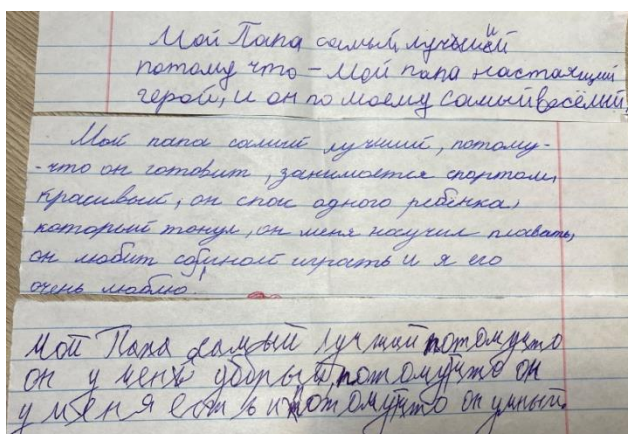 Мой Папа самый лучший
потому что - Мой папа настаящий
герой, и он по моему самый весёлый,
Мой папа самый лучший, потому-
-что он готовит, занимается спортом,
красивый, он спас одного ребёнка,
который тонул, он меня научил плавать,
он любит собмной играть и я его
очень люблю!
Мой Папа самый лучший потомучто
он у меня убоный, потомучто он
у меня есть и потомучто он умный.